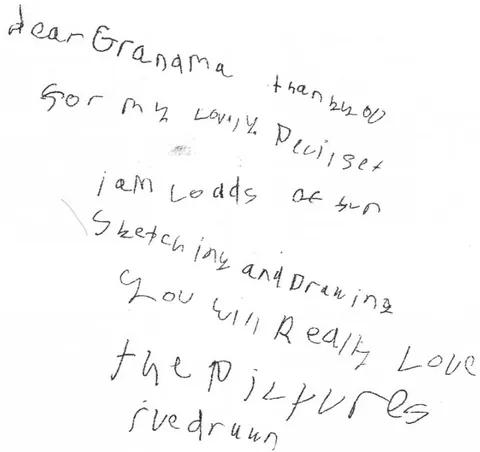 dear Grandma thankyou
for my lovely Pecilset
i am Loads of fun
Sketching and Drawing
you will Really Love
the pictures
ive drawn